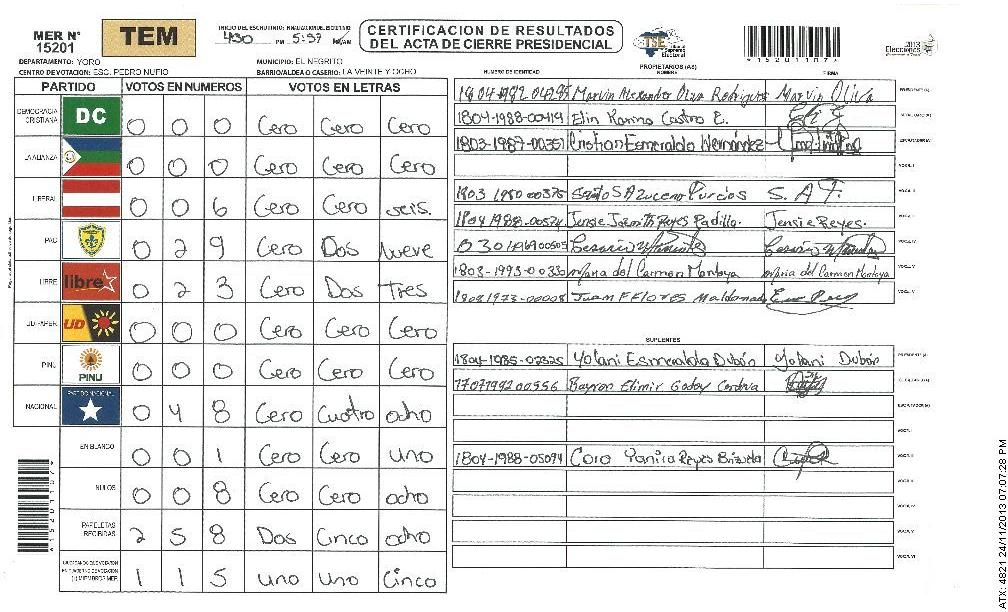 MER Nº
15201
TEM
INICIO DEL ESCRUTINIO: FINALIZACION DEL ESCRUTINIO
430 PM 5:37 AM
CERTIFICACION DE RESULTADOS
DEL ACTA DE CIERRE PRESIDENCIAL
TSE Tribunal Supremo Electoral
2013
Elecciones
*15201107*
DEPARTAMENTO: YORO
MUNICIPIO: EL NEGRITO
CENTRO DE VOTACION: ESC. PEDRO NUFIO
BARRIO/ALDEA O CASERIO: LA VEINTE Y OCHO
PARTIDO VOTOS EN NUMEROS VOTOS EN LETRAS
DEMOCRACIA CRISTIANA DC 0 0 0 Cero Cero Cero
LA ALIANZA 0 0 0 Cero Cero Cero
LIBERAL 0 0 6 Cero Cero seis.
PAC 0 2 9 Cero Dos Nueve
LIBRE libre 0 2 3 Cero Dos Tres
UD-FAPER UD 0 0 0 Cero Cero Cero
PINU PINU 0 0 0 Cero Cero Cero
NACIONAL PARTIDO NACIONAL 0 4 8 Cero Cuatro ocho
EN BLANCO 0 0 1 Cero Cero uno
NULOS 0 0 8 Cero Cero ocho
PAPELETAS RECIBIDAS 2 5 8 Dos Cinco ocho
CIUDADANOS QUE VOTARON
EN CUADERNO DE VOTACION
(+) MIEMBROS MER 1 1 5 uno uno Cinco
PROPIETARIOS (AS)
NUMERO DE IDENTIDAD NOMBRE FIRMA
Marvin Alexander Oliva Rodriguez Marvin Oliva
1804-1988-00419 Elin Karina Castro E.
1803-1987-00351 Cristian Esmeralda Hernández
1803 1980 00375 Santos Azucena S. A F.
1804 1988-00574 Jensie Jasmith Reyes Padilla. Jensie Reyes.
1803-1993-00330 Maria del Carmen Montoya Maria del Carmen Montoya
1808 1973-00008 Juam F FLORES Maldonado
SUPLENTES
1804-1985-02325 Yolani Esmeralda Dubón Yolani Dubón
1707199200556 Bayron Elimir Godoy Cordova
1804-1988-05094 Coro Yanira Reyes Brizuela
ATX: 4821 24/11/2013 07:07:28 PM